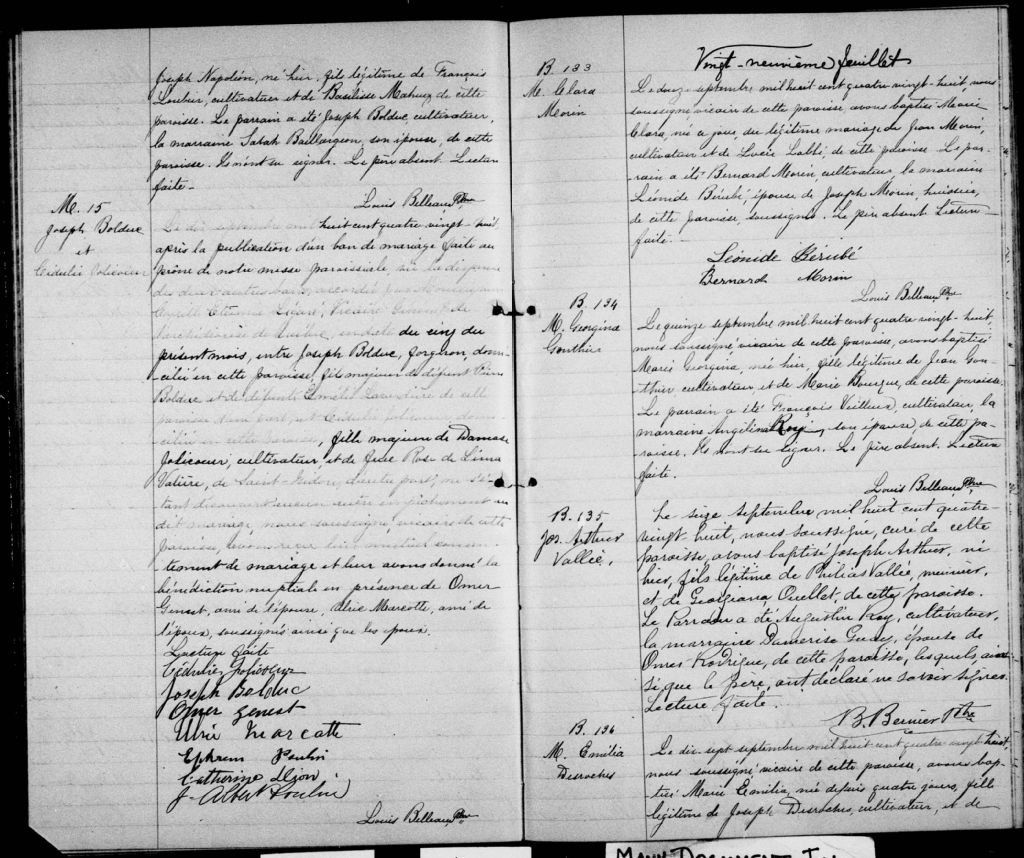 Joseph Napoléon, né hier, fils légitime de François
Loubier, cultivateur et de Basilisse Maheux de cette
paroisse. Le parrain a été Joseph Bolduc, cultivateur,
la marraine Sarah Baillargeon, son épouse, de cette
paroisse. Ils n'ont su signer. Le père absent Lecture
faite.
Louis Belleau Ptre
M. 15
Joseph Bolduc
et
Cédulie Jolicoeur
Le dix septembre mil huit cent quatre vingt-huit,
après la publication d'un ban de mariage faite au
prône de notre messe paroissiale, vu la dispense
des deux autres bans, accordée par Monseigneur
Cyrille Etienne Légaré, Vicaire Général de
l'archidiocèse de Québec, en date du cinq du
présent mois, entre Joseph Bolduc, forgeron, domi-
cilié en cette paroisse, fils majeur de défunt
Bolduc et de défunte de cette
paroisse d'une part, et Cédulie Jolicoeur, domi-
ciliée en cette paroisse, fille majeure de Damase
Jolicoeur, cultivateur, et de feue Rose de Lima
Vatière, de Saint- d'autre part, ne s'é-
tant découvert aucun autre empêchement au
dit mariage, nous soussigné, vicaire de cette
paroisse, avons reçu leur mutuel consen-
tement de mariage et leur avons donné la
bénédiction nuptiale en présence de Omer
Genest, ami de l'épouse, Marcotte, ami de
l'époux, soussignés ainsi que les époux.
Lecture faite
Cédulie Jolicoeur
Joseph Bolduc
Omer Genest
Marcotte
Ephrem Poulin
Catherine
J. Albert Poulin
Louis Belleau Ptre
Vingt-neuvième feuillet
B. 133
M. Clara
Morin
Le douze septembre mil huit cent quatre-vingt-huit, nous
soussigné vicaire de cette paroisse avons baptisé Marie
Clara, née ce jour, du légitime mariage de Jean Morin,
cultivateur et de Lucie Labbé, de cette paroisse. Le par-
rain a été Bernard Morin, cultivateur, la marraine
Léonide Bérubé, épouse de Joseph Morin, huissier,
de cette paroisse, soussignés. Le père absent Lecture
faite.
Léonide Bérubé
Bernard Morin
Louis Belleau Ptre
B. 134
M. Georgina
Gonthier
Le quinze septembre mil huit cent quatre vingt-huit,
nous soussigné vicaire de cette paroisse, avons baptisé
Marie Georgina, née hier, fille légitime de Jean Gon-
thier cultivateur, et de Marie Bourque, de cette paroisse.
Le parrain a été François Veilleux cultivateur, la
marraine Angélina Roy, son épouse, de cette pa-
roisse. Ils n'ont su signer. Le père absent. Lecture
faite.
Louis Belleau Ptre
B. 135
Jos. Arthur
Vallié.
Le seize septembre mil huit cent quatre-
vingt huit, nous soussigné, curé de cette
paroisse, avons baptisé Joseph Arthur, né
hier, fils légitime de Philias Vallié, meunier,
et de Georgiana Ouellet, de cette paroisse.
Le Parrain a été Augustin Roy, cultivateur,
la marraine Damerise Guay, épouse de
Omer Rodrigue, de cette paroisse, lesquels, ain-
si que le père, ont déclaré ne savoir signer.
Lecture faite.
B. Bernier Ptre
B. 136
M. Emilia
Desroches
Le dix-sept septembre mil huit cent quatre vingt huit,
nous soussigné vicaire de cette paroisse, avons bap-
tisé Marie Emilia, née depuis quatre jours, fille
légitime de Joseph Desroches, cultivateur, et de